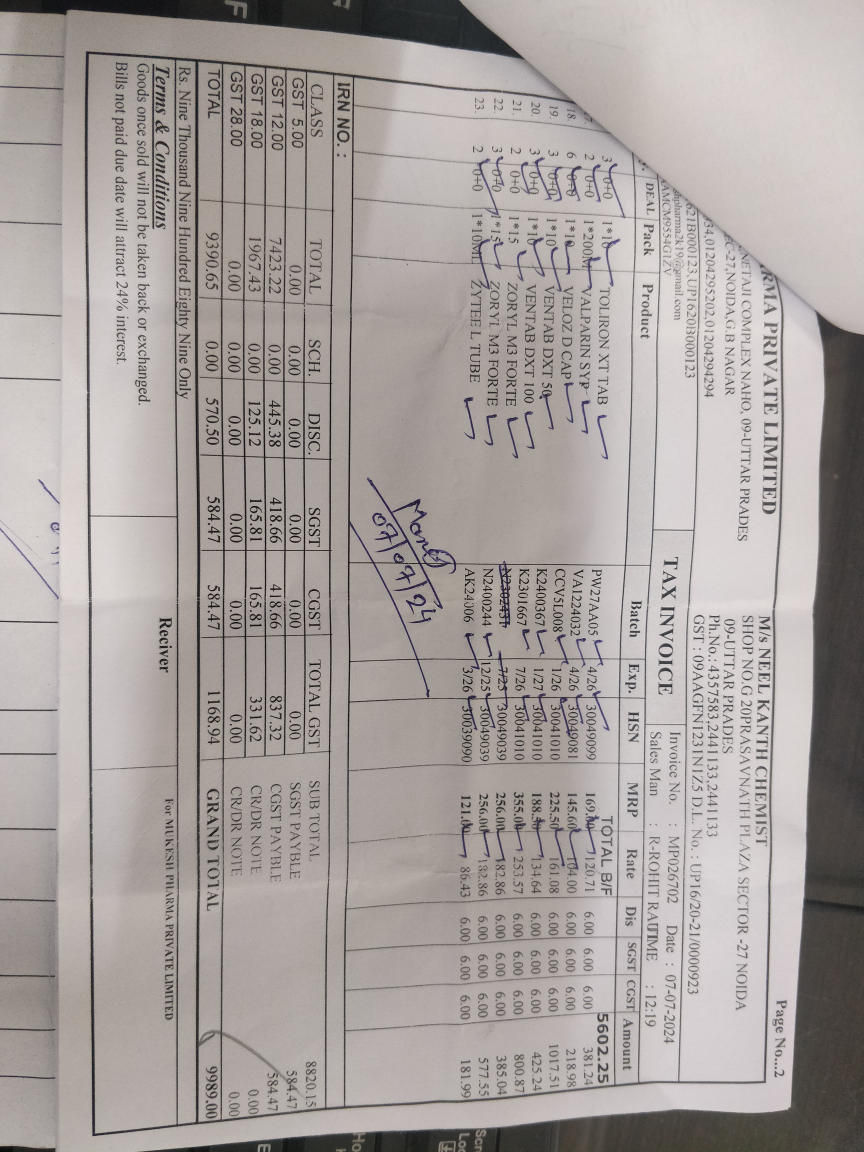 Page No...2
RMA PRIVATE LIMITED
NETAJI COMPLEX NAHO, 09-UTTAR PRADES
C-27,NOIDA,G.B NAGAR
34,01204295202,01204294294
621B000123,UP1620B000123
pharma2k19@gmail.com
AMCM9554G1ZV
M/s NEEL KANTH CHEMIST
SHOP NO.G 20PRASAVNATH PLAZA SECTOR -27 NOIDA
09-UTTAR PRADES
Ph.No.: 4357583,2441133,2441133
GST : 09AAGFN1231N1Z5 D.L. No. : UP16/20-21/0000923
TAX INVOICE
Invoice No. : MP026702 Date : 07-07-2024
Sales Man : R-ROHIT RAI TIME : 12:19
DEAL Pack Product Batch Exp. HSN MRP Rate Dis SGST CGST Amount
TOTAL B/F 5602.25
3 0+0 1*10 TOLIRON XT TAB PW27AA05 4/26 30049099 169.00 120.71 6.00 6.00 6.00 381.24
2 0+0 1*200M VALPARIN SYP VA1224032 4/26 30049081 145.60 104.00 6.00 6.00 6.00 218.98
18. 6 0+0 1*10 VELOZ D CAP CCV5L008 1/26 30041010 225.50 161.08 6.00 6.00 6.00 1017.51
19. 3 0+0 1*10 VENTAB DXT 50 K2400367 1/27 30041010 188.50 134.64 6.00 6.00 6.00 425.24
20. 3 0+0 1*10 VENTAB DXT 100 K2301667 7/26 30041010 355.00 253.57 6.00 6.00 6.00 800.87
21. 2 0+0 1*15 ZORYL M3 FORTE N2302431 7/25 30049039 256.00 182.86 6.00 6.00 6.00 385.04
22. 3 0+0 1*15 ZORYL M3 FORTE N2400244 12/25 30049039 256.00 182.86 6.00 6.00 6.00 577.55
23. 2 0+0 1*10ML ZYTEE L TUBE AK24006 3/26 30039090 121.00 86.43 6.00 6.00 6.00 181.99
07/07/24
IRN NO. :
CLASS TOTAL SCH. DISC. SGST CGST TOTAL GST
GST 5.00 0.00 0.00 0.00 0.00 0.00 0.00
GST 12.00 7423.22 0.00 445.38 418.66 418.66 837.32
GST 18.00 1967.43 0.00 125.12 165.81 165.81 331.62
GST 28.00 0.00 0.00 0.00 0.00 0.00 0.00
TOTAL 9390.65 0.00 570.50 584.47 584.47 1168.94
SUB TOTAL 8820.15
SGST PAYBLE 584.47
CGST PAYBLE 584.47
CR/DR NOTE 0.00
CR/DR NOTE 0.00
GRAND TOTAL 9989.00
Rs. Nine Thousand Nine Hundred Eighty Nine Only
Terms & Conditions
Goods once sold will not be taken back or exchanged.
Bills not paid due date will attract 24% interest.
Reciver
For MUKESH PHARMA PRIVATE LIMITED